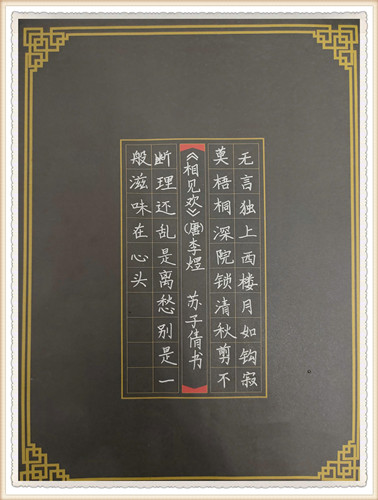 无言独上西楼月如钩寂
莫梧桐深院锁清秋剪不
《相见欢》(唐)李煜 苏子倩书
断理还乱是离愁别是一
般滋味在心头